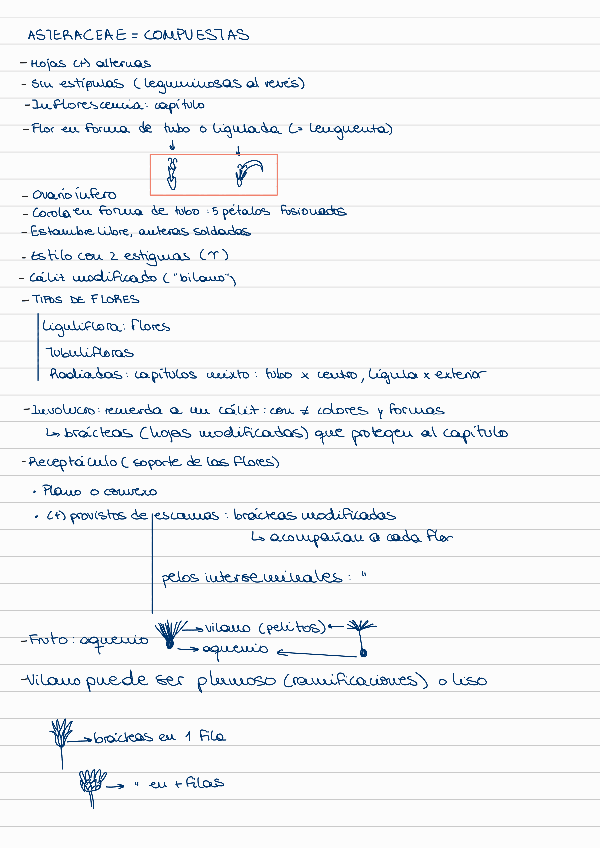 ASTERACEAE = COMPUESTAS
- Hojas (+) alternas
- Sin estípulas (leguminosas al revés)
- Inflorescencia: capítulo
- Flor en forma de tubo o ligulada (↳ lengüeta)
- Ovario ínfero
- Corola en forma de tubo: 5 pétalos fusionados
- Estambre libre, anteras soldadas
- Estilo con 2 estigmas (ϒ)
- Cáliz modificado ("bilano")
- TIPOS DE FLORES
Liguliflora: Flores
Tubulifloras
Radiadas: capítulos mixto: tubo x centro, lígula x exterior
- Involucro: recuerda a un cáliz: con ≠ colores y formas
↳ brácteas (hojas modificadas) que protegen al capítulo
- Receptáculo (soporte de las flores)
• Plano o convexo
• (+) provistos de escamas: brácteas modificadas
↳ acompañan a cada flor
pelos interseminales: "
→ vilano (pelitos) ←
- Fruto: aquenio
→ aquenio ←
- Vilano puede ser plumoso (ramificaciones) o liso
→ brácteas en 1 fila
→ " en + filas